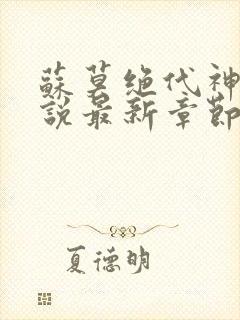 蘇莫絶代神
説最新章節
夏德明